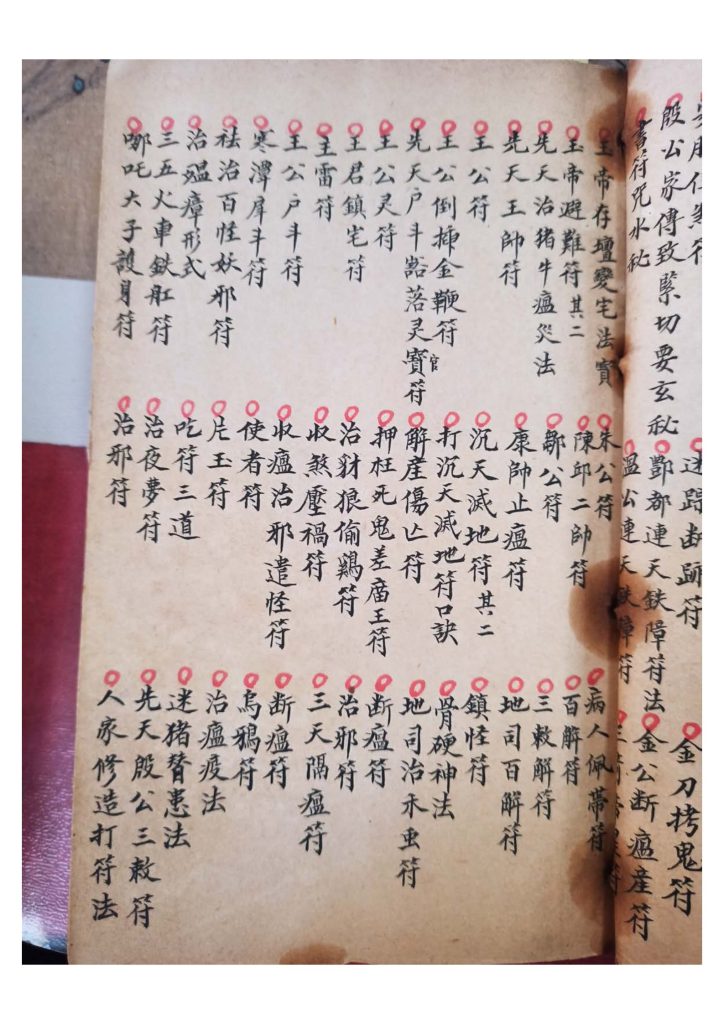 殷公家傳致緊切要玄秘
書符咒水秘
迷踪断跡符
酆都連天鉄障符法
溫公連天鉄障符
金刀拷鬼符
金公断瘟産符
玉帝存壇變宅法寶
玉帝避難符其二
先天治猪牛瘟災法
先天王帥符
王公符
王公倒挿金鞭符
先天户斗豁落灵官寳符
王公灵符
王君鎮宅符
主雷符
王公户斗符
寒潭犀斗符
祛治百怪妖邪符
治瘟瘴形式
三五火車鉄缸符
哪吒太子護身符
朱公符
陳邱二帥符
鄒公符
康帥止瘟符
沉天滅地符其二
打沉天滅地符口訣
解産傷亡符
押枉死鬼差廟王符
治豺狼偷鷄符
收煞壓禍符
收瘟治邪遣怪符
使者符
片玉符
吃符三道
治夜夢符
治邪符
病人佩帶符
百解符
三敕解符
地司百解符
鎮怪符
骨硬神法
地司治禾虫符
断瘟符
治邪符
三天隔瘟符
断瘟符
烏鴉符
治瘟疫法
迷猪替患法
先天殷公三敕符
人家修造打符法